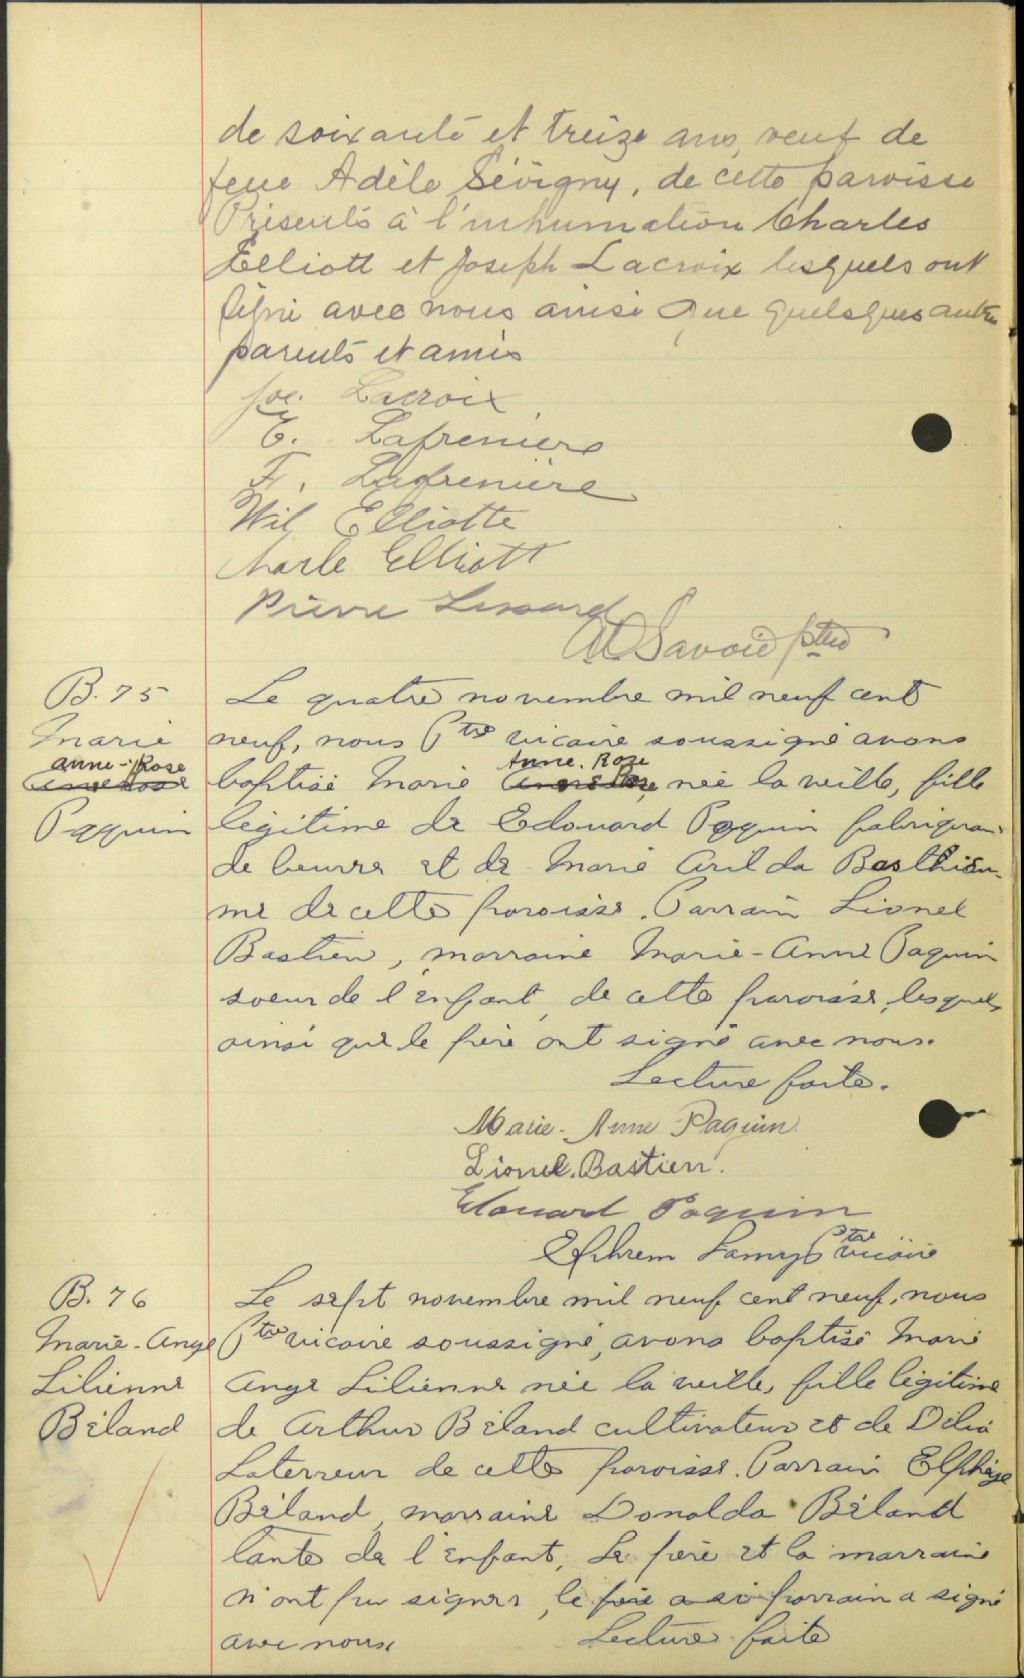 de soixante et treize ans, veuf de
feue Adèle Sévigny, de cette paroisse
Présents à l'inhumation Charles
Elliott et Joseph Lacroix lesquels ont
signé avec nous ainsi que quelques autres
parents et amis
Jos. Lacroix
E. Lafreniere
F. Lafrenière
Wil Elliotte
Charle Elliott
Pierre Lessard
Savoie ptre
B. 75
Marie
Anne-Rose
Paquin
Le quatre novembre mil neuf cent
neuf, nous Ptre vicaire soussigné avons
Anne. Rose
baptisé Marie née la veille, fille
légitime de Edouard Paquin fabriquant
de beurre et de Marie Arilda Basthien-
ne de cette paroisse. Parrain Lionel
Bastien, marraine Marie-Anne Paquin
soeur de l'enfant, de cette paroisse, lesquels
ainsi que le père ont signé avec nous.
Lecture faite.
Marie-Anne Paquin.
Lionel. Bastien.
Edouard Paquin
Ephrem Lamy Ptre vicaire
B. 76
Marie-Ange
Lilienne
Béland
Le sept novembre mil neuf cent neuf, nous
Ptre vicaire soussigné, avons baptisé Marie
Ange Lilienne née la veille, fille légitime
de Arthur Béland cultivateur et de Délia
Laterreur de cette paroisse. Parrain Elphège
Béland, marraine Donalda Béland
tante de l'enfant, Le père et la marraine
n'ont pu signer, le parrain a signé
avec nous. Lecture faite